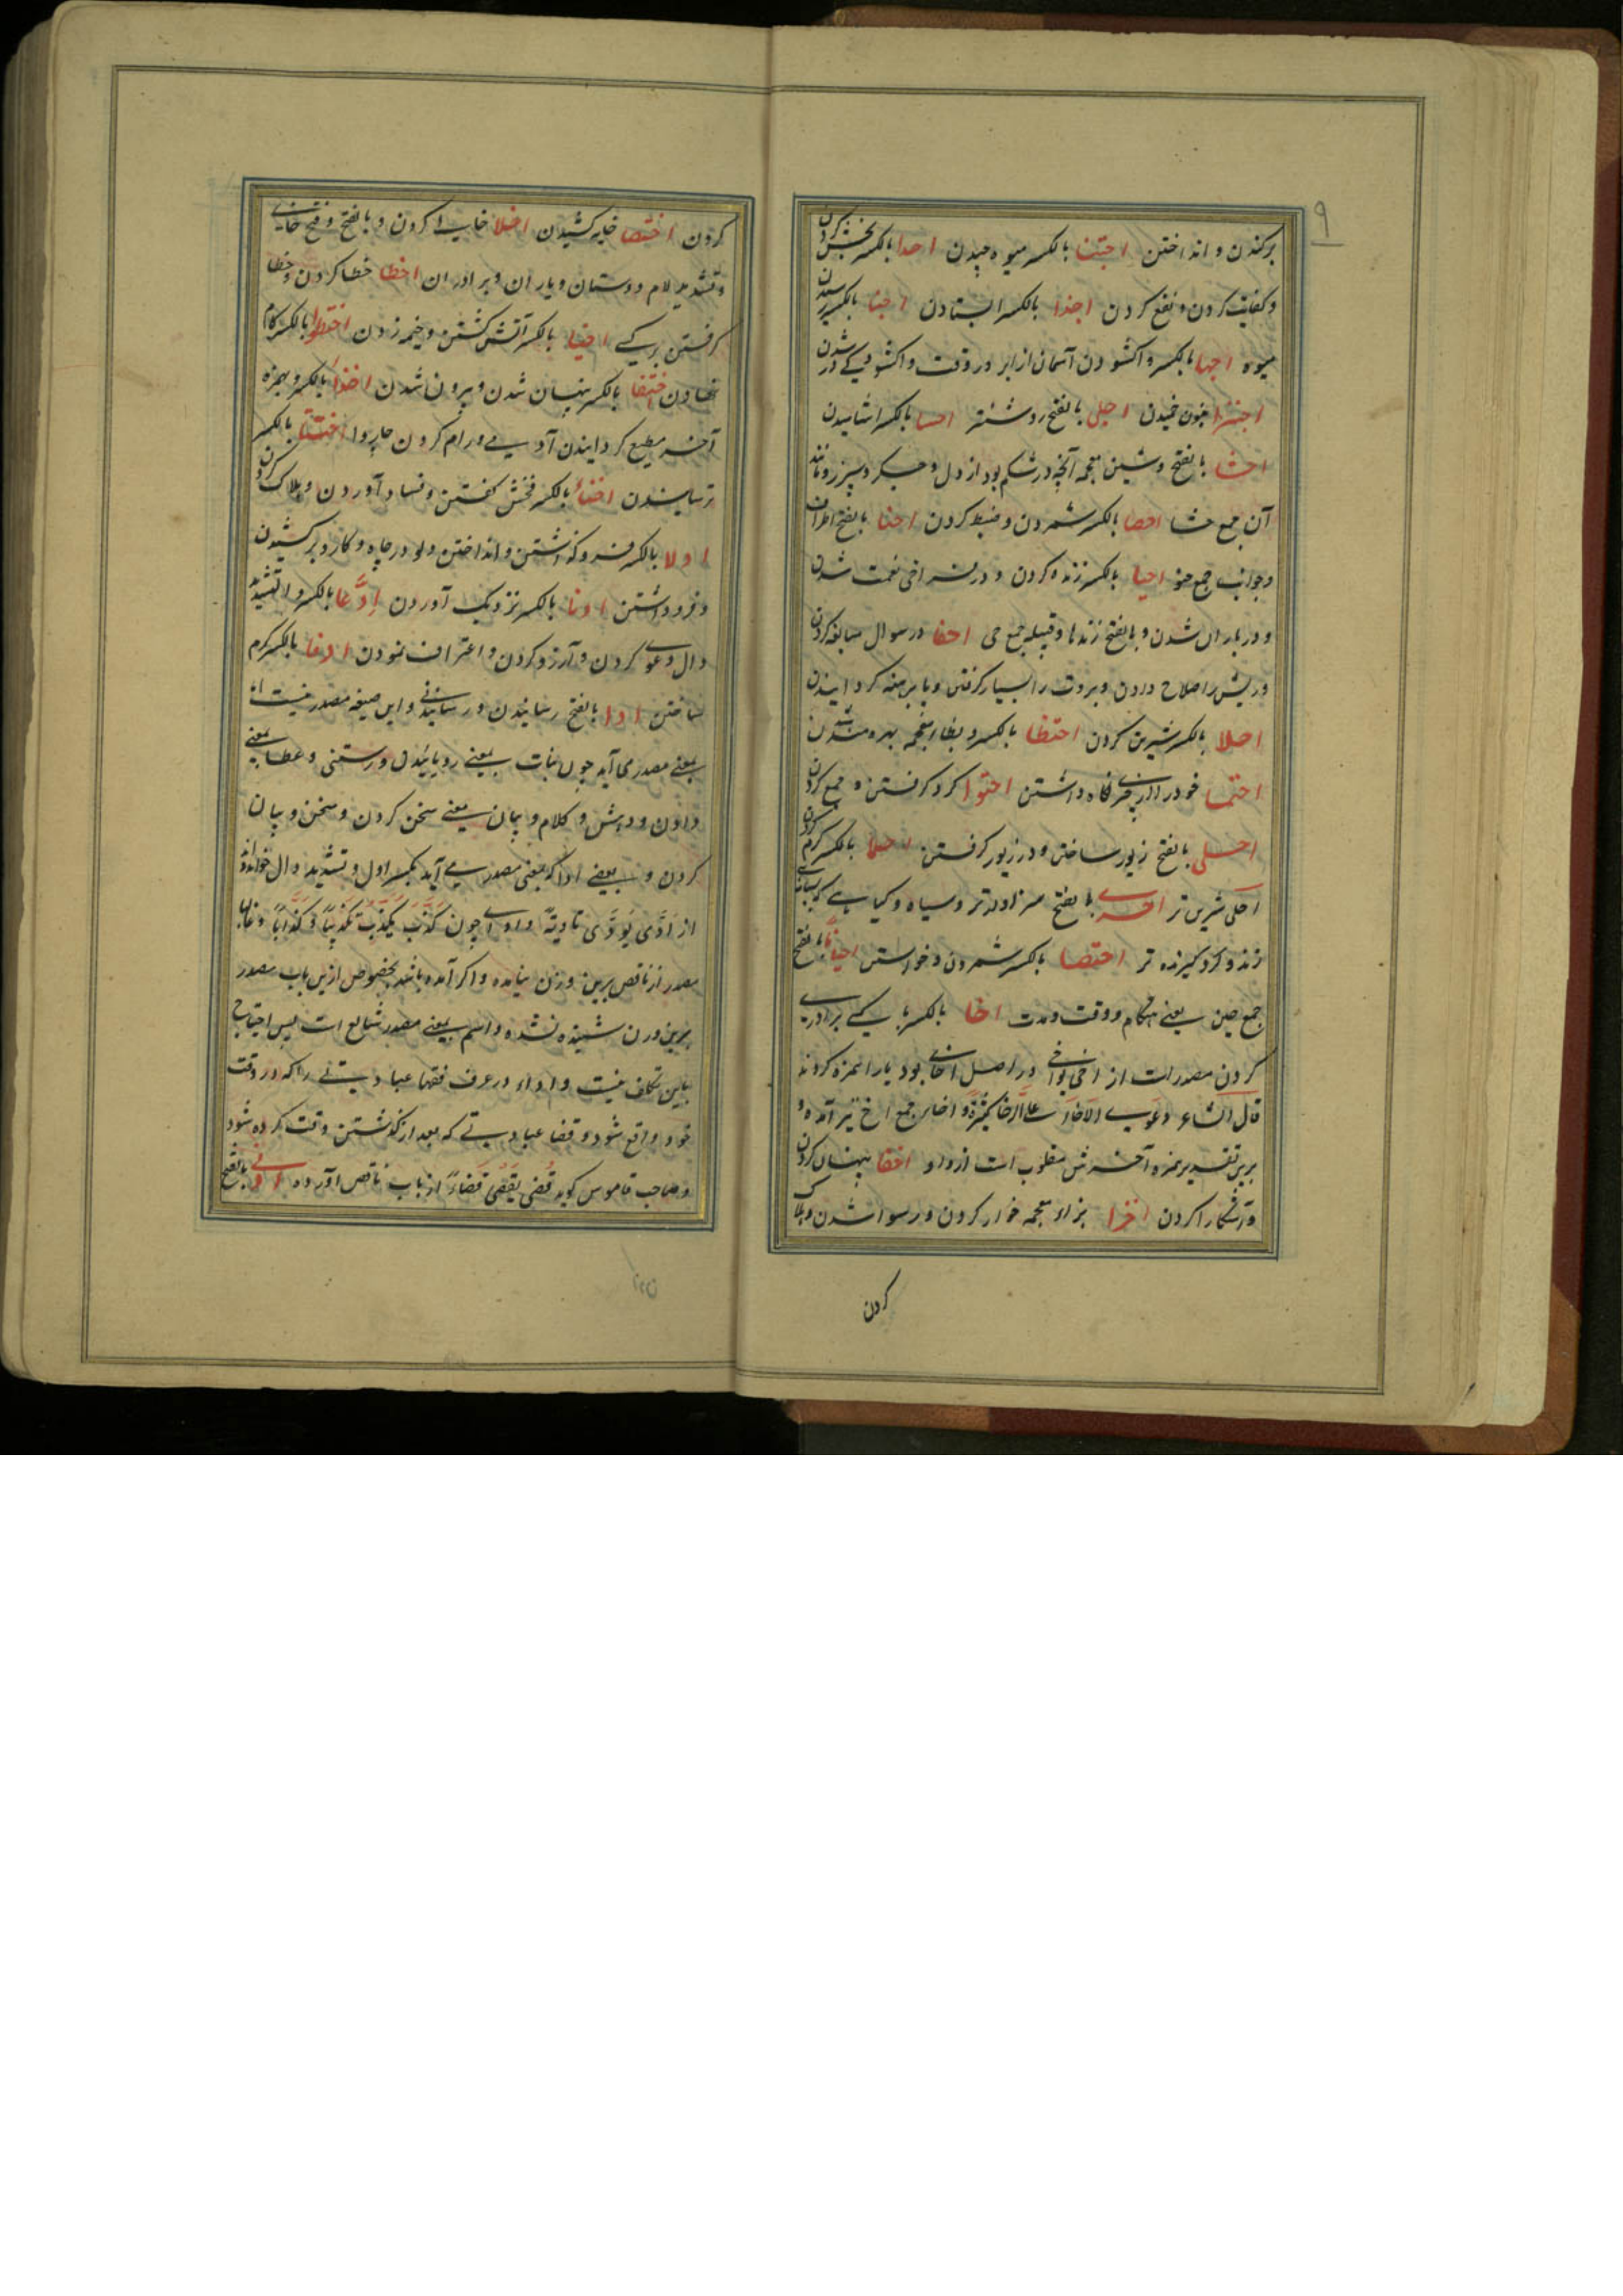 ۹
برکندن و انداختن اجتنا بالکسر میوه چیدن اجدا بالکسر بخشش کردن
و کفایت کردن و نفع کردن اجذا بالکسر ایستادن اجنا بالکسر رسیدن
میوه اجها بالکسر واکشودن آسمان از ابر در وقت واکشودگی در شدن
اجلی بالفتح روشنتر احسا بالکسر اشامیدن
احشا بالفتح و شین معجمه آنچه در شکم بود از دل و جگر و سپرز و مانند
آن جمع حشا احصا بالکسر شمردن و ضبط کردن احنا بالفتح اطراف
و جوانب جمع حنو احیا بالکسر زنده کردن و در فراخی نعمت شدن
و در باران شدن و بالفتح زندها و قبیلها جمع حی احفا در سوال مبالغه کردن
و ریش را صلاح دادن و بروت را بسیار گرفتن و پا برهنه گردانیدن
احلا بالکسر شیرین کردن احتظا بالکسر و بظاء معجمه بهره مند شدن
احتما خود را از چیزی نگاه داشتن احتوا گرد گرفتن و جمع کردن
احلی بالفتح زیور ساختن و در زیور گرفتن احما بالکسر گرم کردن
احلی شیرین تر احری بالفتح سزاوارتر و سیاه و گیاهی که بسیاهی
زند و گرد گیرنده تر احتصا بالکسر شمردن و خواستن احیانا بالفتح
جمع حین یعنی هنگام و وقت و مدت اخا بالکسر با کسی برادری
کردن مصدر است از اخی یواخی در اصل اخای بود یا را همزه کردند
قال الشاعر دعوی الاخاء علی الرخا کثیرة و اخا جمع اخ نیز آمده و
برین تقدیر همزه آخرش مقلوب است از واو اخفا پنهان کردن
و آشکارا کردن اخزا بزاء معجمه خوار کردن و رسوا شدن و هلاک
کردن
کردن اختصا خایه کشیدن اخلا خالی کردن و بالفتح و فتح خای
و تشدید لام دوستان و یاران و برادران اخطا خطا کردن و خطا
گرفتن بر کسی اخبا بالکسر آتش کشتن و خیمه زدن اختطوا بالکسر کام
نهادن اختفا بالکسر پنهان شدن و بیرون شدن اخذا بالکسر و بهمزه
آخر مطیع گردانیدن آدمی و رام کردن چاروا اختتا بالکسر
ترسانیدن اخنا بالکسر فحش گفتن و فساد آوردن و هلاک کردن
ادلا بالکسر فرو گذاشتن و انداختن دلو در چاه و کار دبر کشیدن
و فرو داشتن ادنا بالکسر نزدیک آوردن اِدَّعا بالکسر و التشدید
دال دعوی کردن و آرزو کردن و اعتراف نمودن ادفا بالکسر گرم
ساختن ادا بالفتح رسانیدن و رسانیدنی و این صیغه مصدر نیست اما
بمعنی مصدر می آید چون نبات بمعنی روییدن و رستنی و عطا بمعنی
دادن و دهش و کلام و بیان بمعنی سخن کردن و سخن و بیان
کردن و بعضی ادا که بمعنی مصدر می آید بکسر اول و تشدید دال خوانند
از ادّی یؤدّی تادیةً و اداء چون کَذَّبَ یُکَذِّبُ تَکذیباً و کِذّاباً و غالبا
مصدر از ناقص برین وزن نیامده و اگر آمده باشد بخصوص ازین باب مصدر
برین وزن شنیده نشده و اسم بمعنی مصدر شایع است پس احتیاج
باین تکلف نیست و اداء در عرف فقها عبادتی را که در وقت
خود واقع شود و قضا عبادتی که بعد از گذشتن وقت کرده شود
و صاحب قاموس گوید قضی یقضی قضاءً از باب ناقص آورده ادنی بالفتح